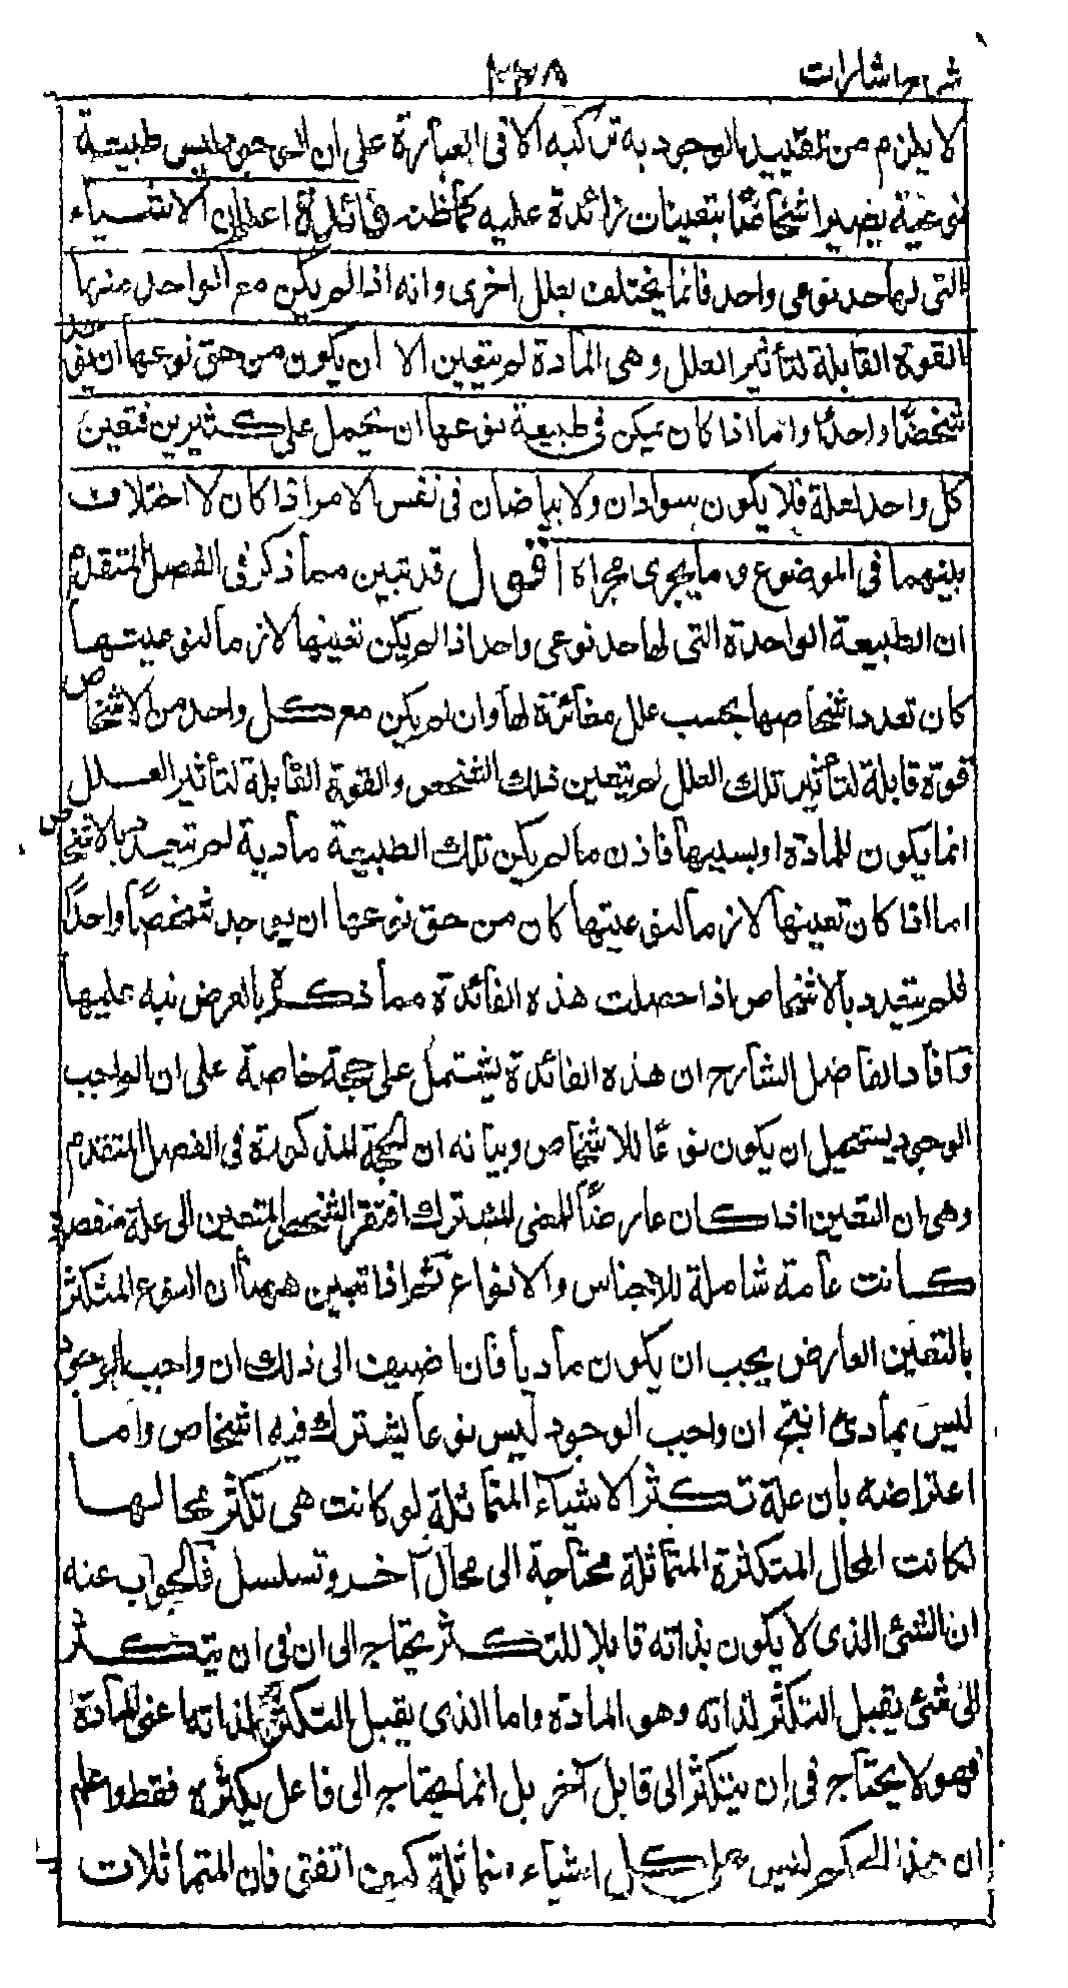 شرح اشارات ٢٣٨
لا يلزم من تقييد الوجود به تركبه الا فى العبارة على ان الوجود ليس طبيعة
نوعية يصير اشخاصًا بتعينات زائدة عليه كما ظنه فائدة اعلم ان الاشياء
التى لها حد نوعى واحد فانما يختلف بعلل اخرى وانه اذا لم يكن مع الواحد منها
القوة القابلة لتأثير العلل وهى المادة لم يتعين الا ان يكون من حق نوعها ان يوجد
شخصًا واحدًا واما اذا كان يمكن فى طبيعة نوعها ان تحمل على كثيرين فتعين
كل واحد لعلة فلا يكون سوادان ولا بياضان فى نفس الامر اذا كان لا اختلاف
بينهما فى الموضوع وما يجرى مجراه اقول قد تبين مما ذكر فى الفصل المتقدم
ان الطبيعة الواحدة التى لها حد نوعى واحد اذا لم يكن تعينها لازما لنوعيتها
كان تعدد اشخاصها بحسب علل مغائرة لها وان لم يكن مع كل واحد من الاشخاص
قوة قابلة لتأثير تلك العلل لم يتعين ذلك الشخص والقوة القابلة لتأثير العلل
انما يكون للمادة او بسببها فاذن ما لم يكن تلك الطبيعة مادية لم تتعدد بالاشخاص
اما اذا كان تعينها لازما لنوعيتها كان من حق نوعها ان يوجد شخصًا واحدًا
فلم يتعدد بالاشخاص اذا حصلت هذه الفائدة مما ذكره بالعرض نبه عليها
وافاد الفاضل الشارح ان هذه الفائدة يشتمل على حجة خاصة على ان الواجب
الوجود يستحيل ان يكون نوعًا للاشخاص وبيانه ان الحجة المذكورة فى الفصل المتقدم
وهى ان التعين اذا كان عارضًا للمعنى المشترك افتقر الشخص المتعين الى علة منفصلة
كانت عامة شاملة للاجناس والانواع ثم اذا تبين ههنا ان النوع المتكثر
بالتعين العارض يجب ان يكون ماديا فان اضيف الى ذلك ان واجب الوجود
ليس بمادى انتج ان واجب الوجود ليس نوعا يشترك فيه اشخاص واما
اعتراضه بان علة تكثر الاشياء المتماثلة لو كانت هى تكثر محالها
لكانت المحال المتكثرة المتماثلة محتاجة الى محال آخر وتسلسل فالجواب عنه
ان الشئ الذى لا يكون بذاته قابلا للتكثر يحتاج الى ان فى ان يتكثر
الى شئ يقبل التكثر لذاته وهو المادة واما الذى يقبل التكثر لذاته اعنى المادة
فهو لا يحتاج فى ان يتكثر الى قابل آخر بل انما يحتاج الى فاعل يكثره فقط واعلم
ان هذا الحكم ليس على كل اشياء متماثلة كيف اتفق فان المتماثلات